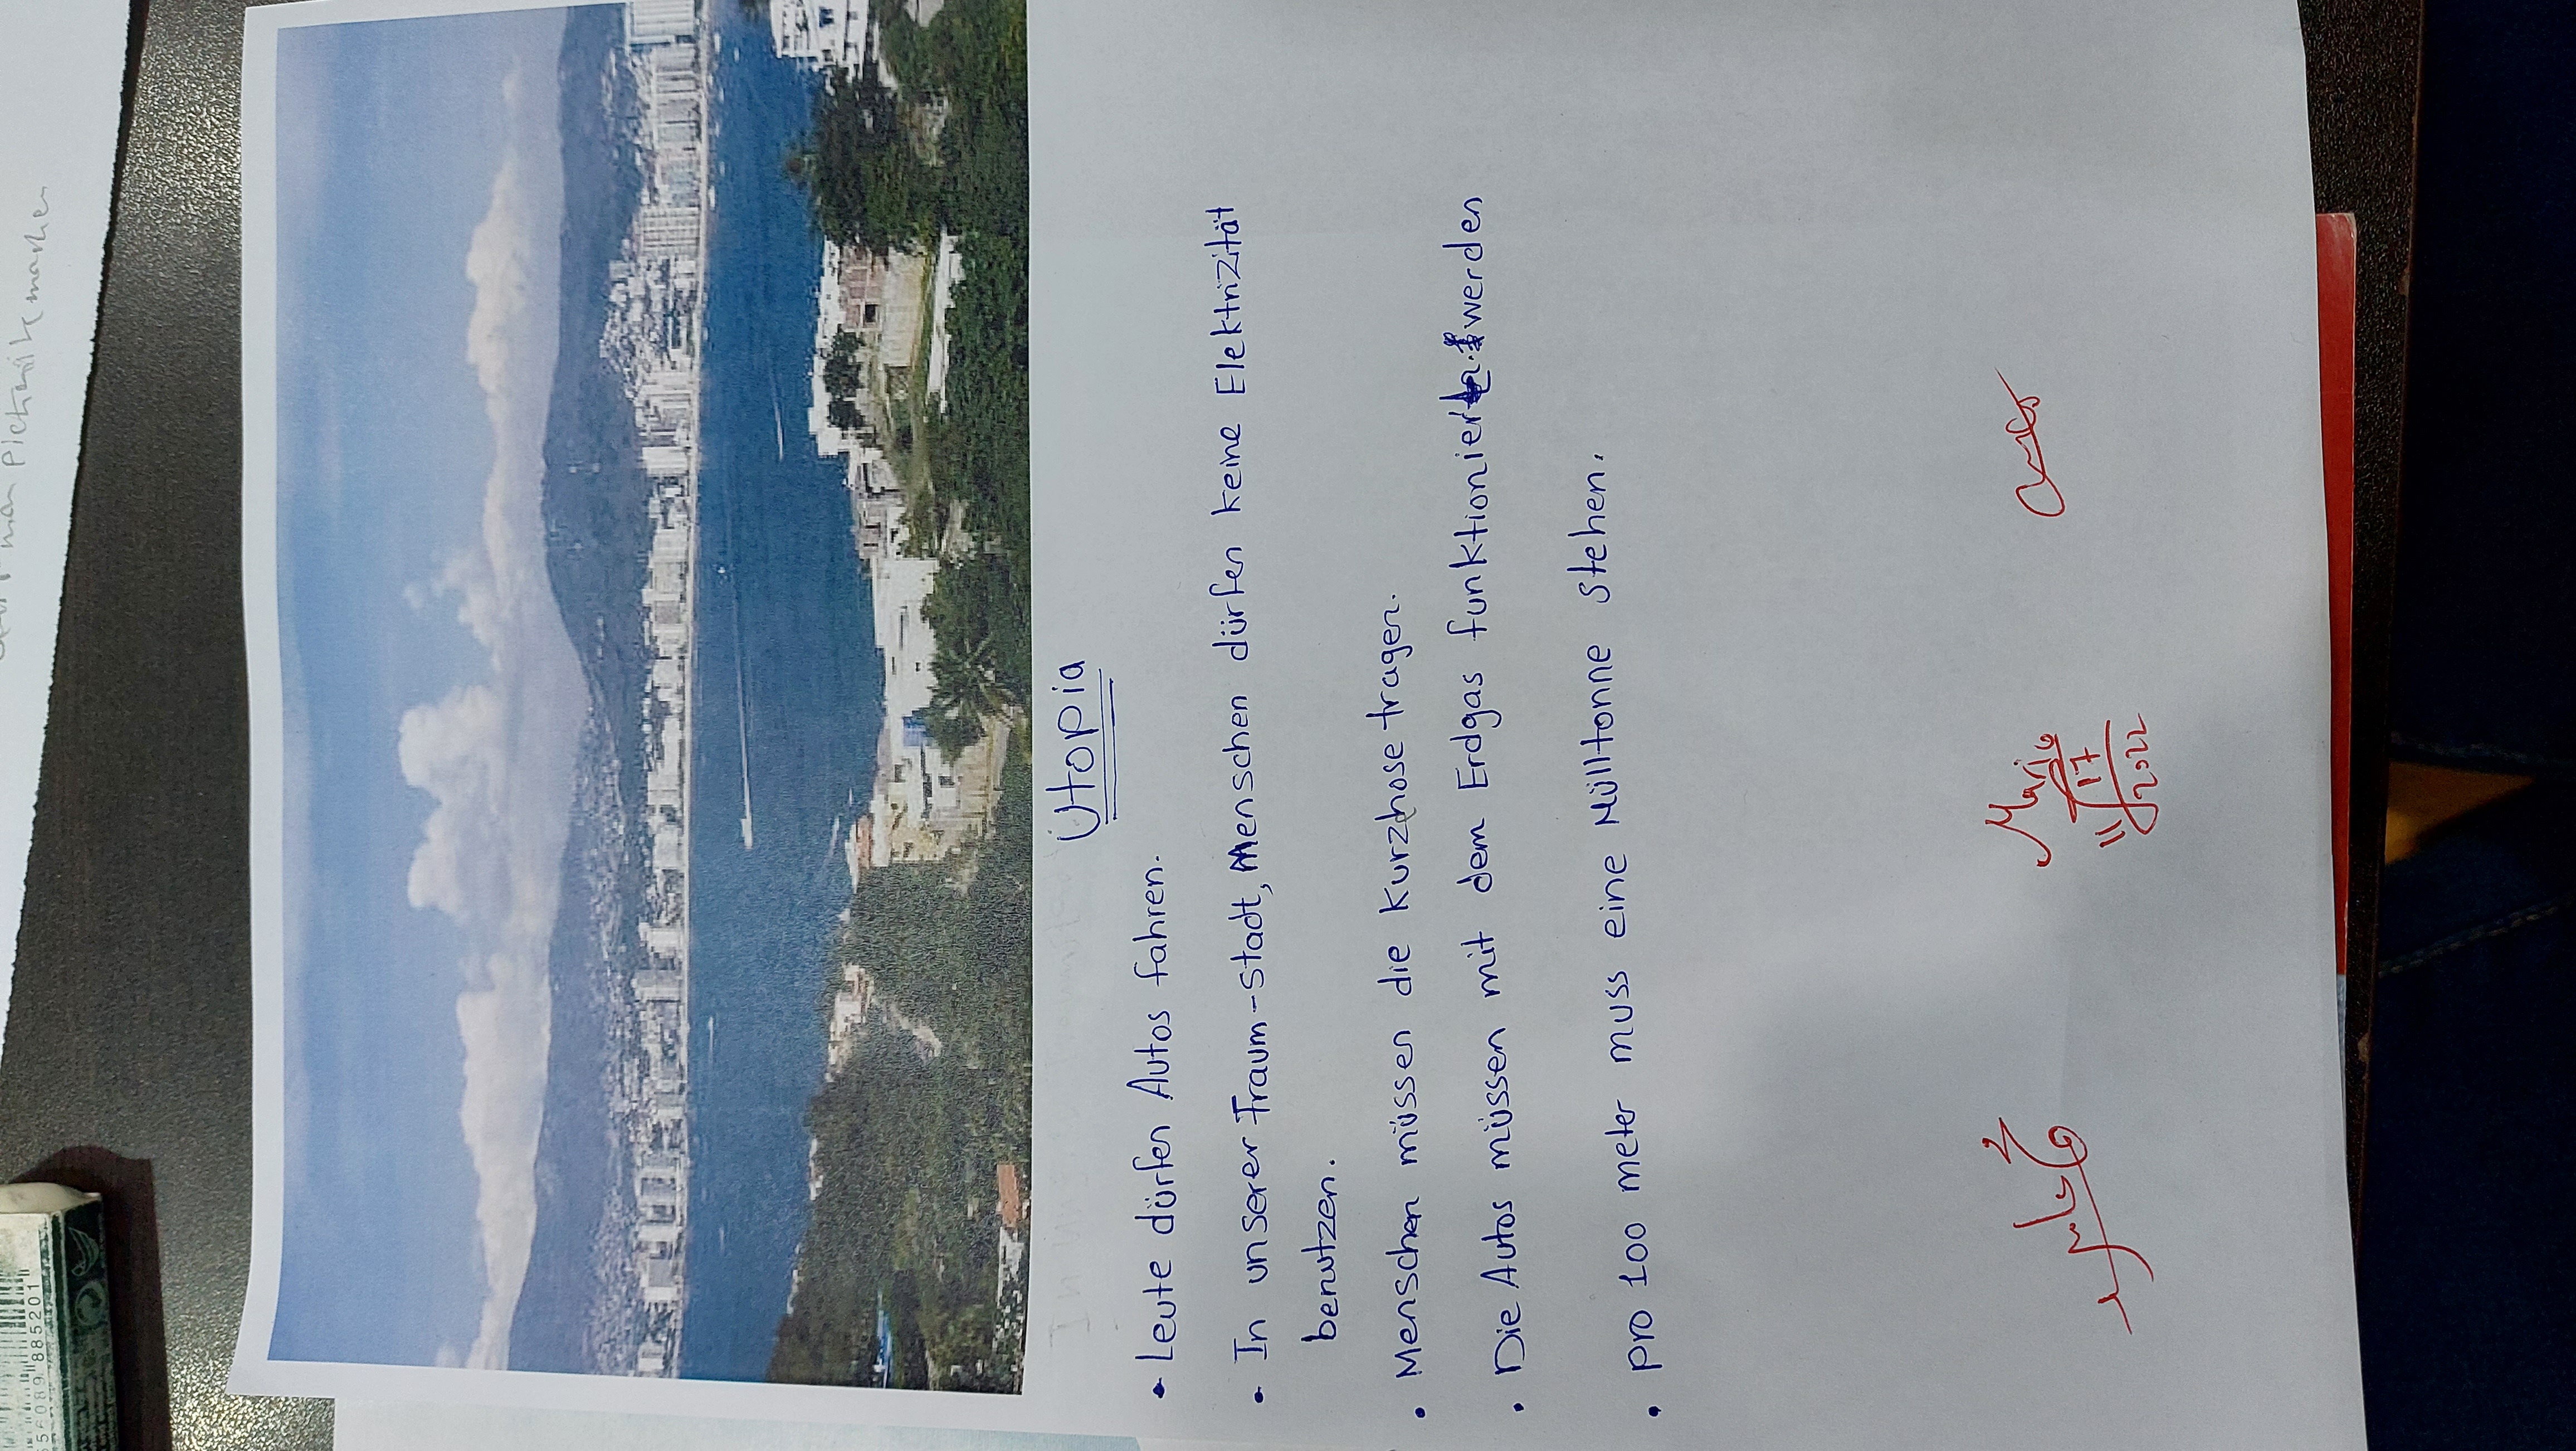 556089 885201
man
Utopia
• Leute dürfen Autos fahren.
• In unserer Traum-stadt, Menschen dürfen keine Elektrizität
benutzen.
• Menschen müssen die Kurzhose tragen.
• Die Autos müssen mit dem Erdgas funktioniert werden
• pro 100 meter muss eine Mülltonne stehen.
Mario
11/17
2022